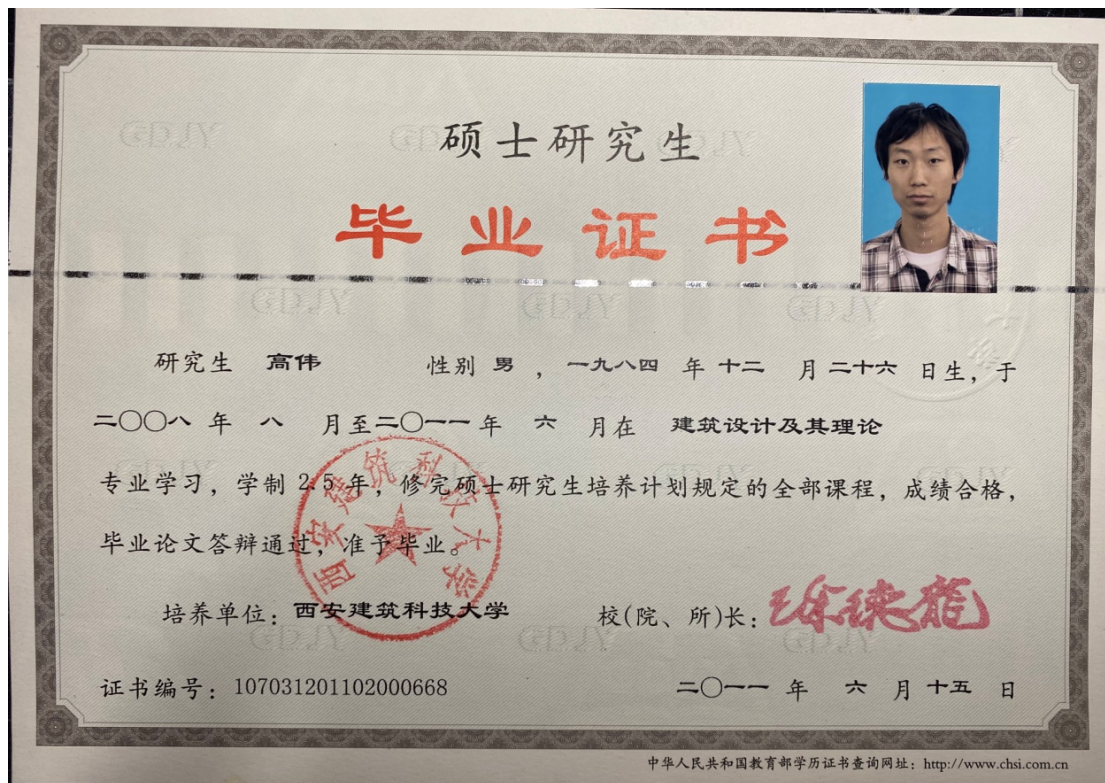 硕士研究生
毕业证书
研究生 高伟 性别 男 ，一九八四 年 十二 月 二十六 日生，于
二〇〇八 年 八 月至二〇一一 年 六 月在 建筑设计及其理论
专业学习，学制 2.5 年，修完硕士研究生培养计划规定的全部课程，成绩合格，
毕业论文答辩通过，准予毕业。
西安建筑科技大学
培养单位：西安建筑科技大学 校(院、所)长：徐德龙
证书编号：107031201102000668 二〇一一 年 六 月 十五 日
中华人民共和国教育部学历证书查询网址：http://www.chsi.com.cn
GDJY